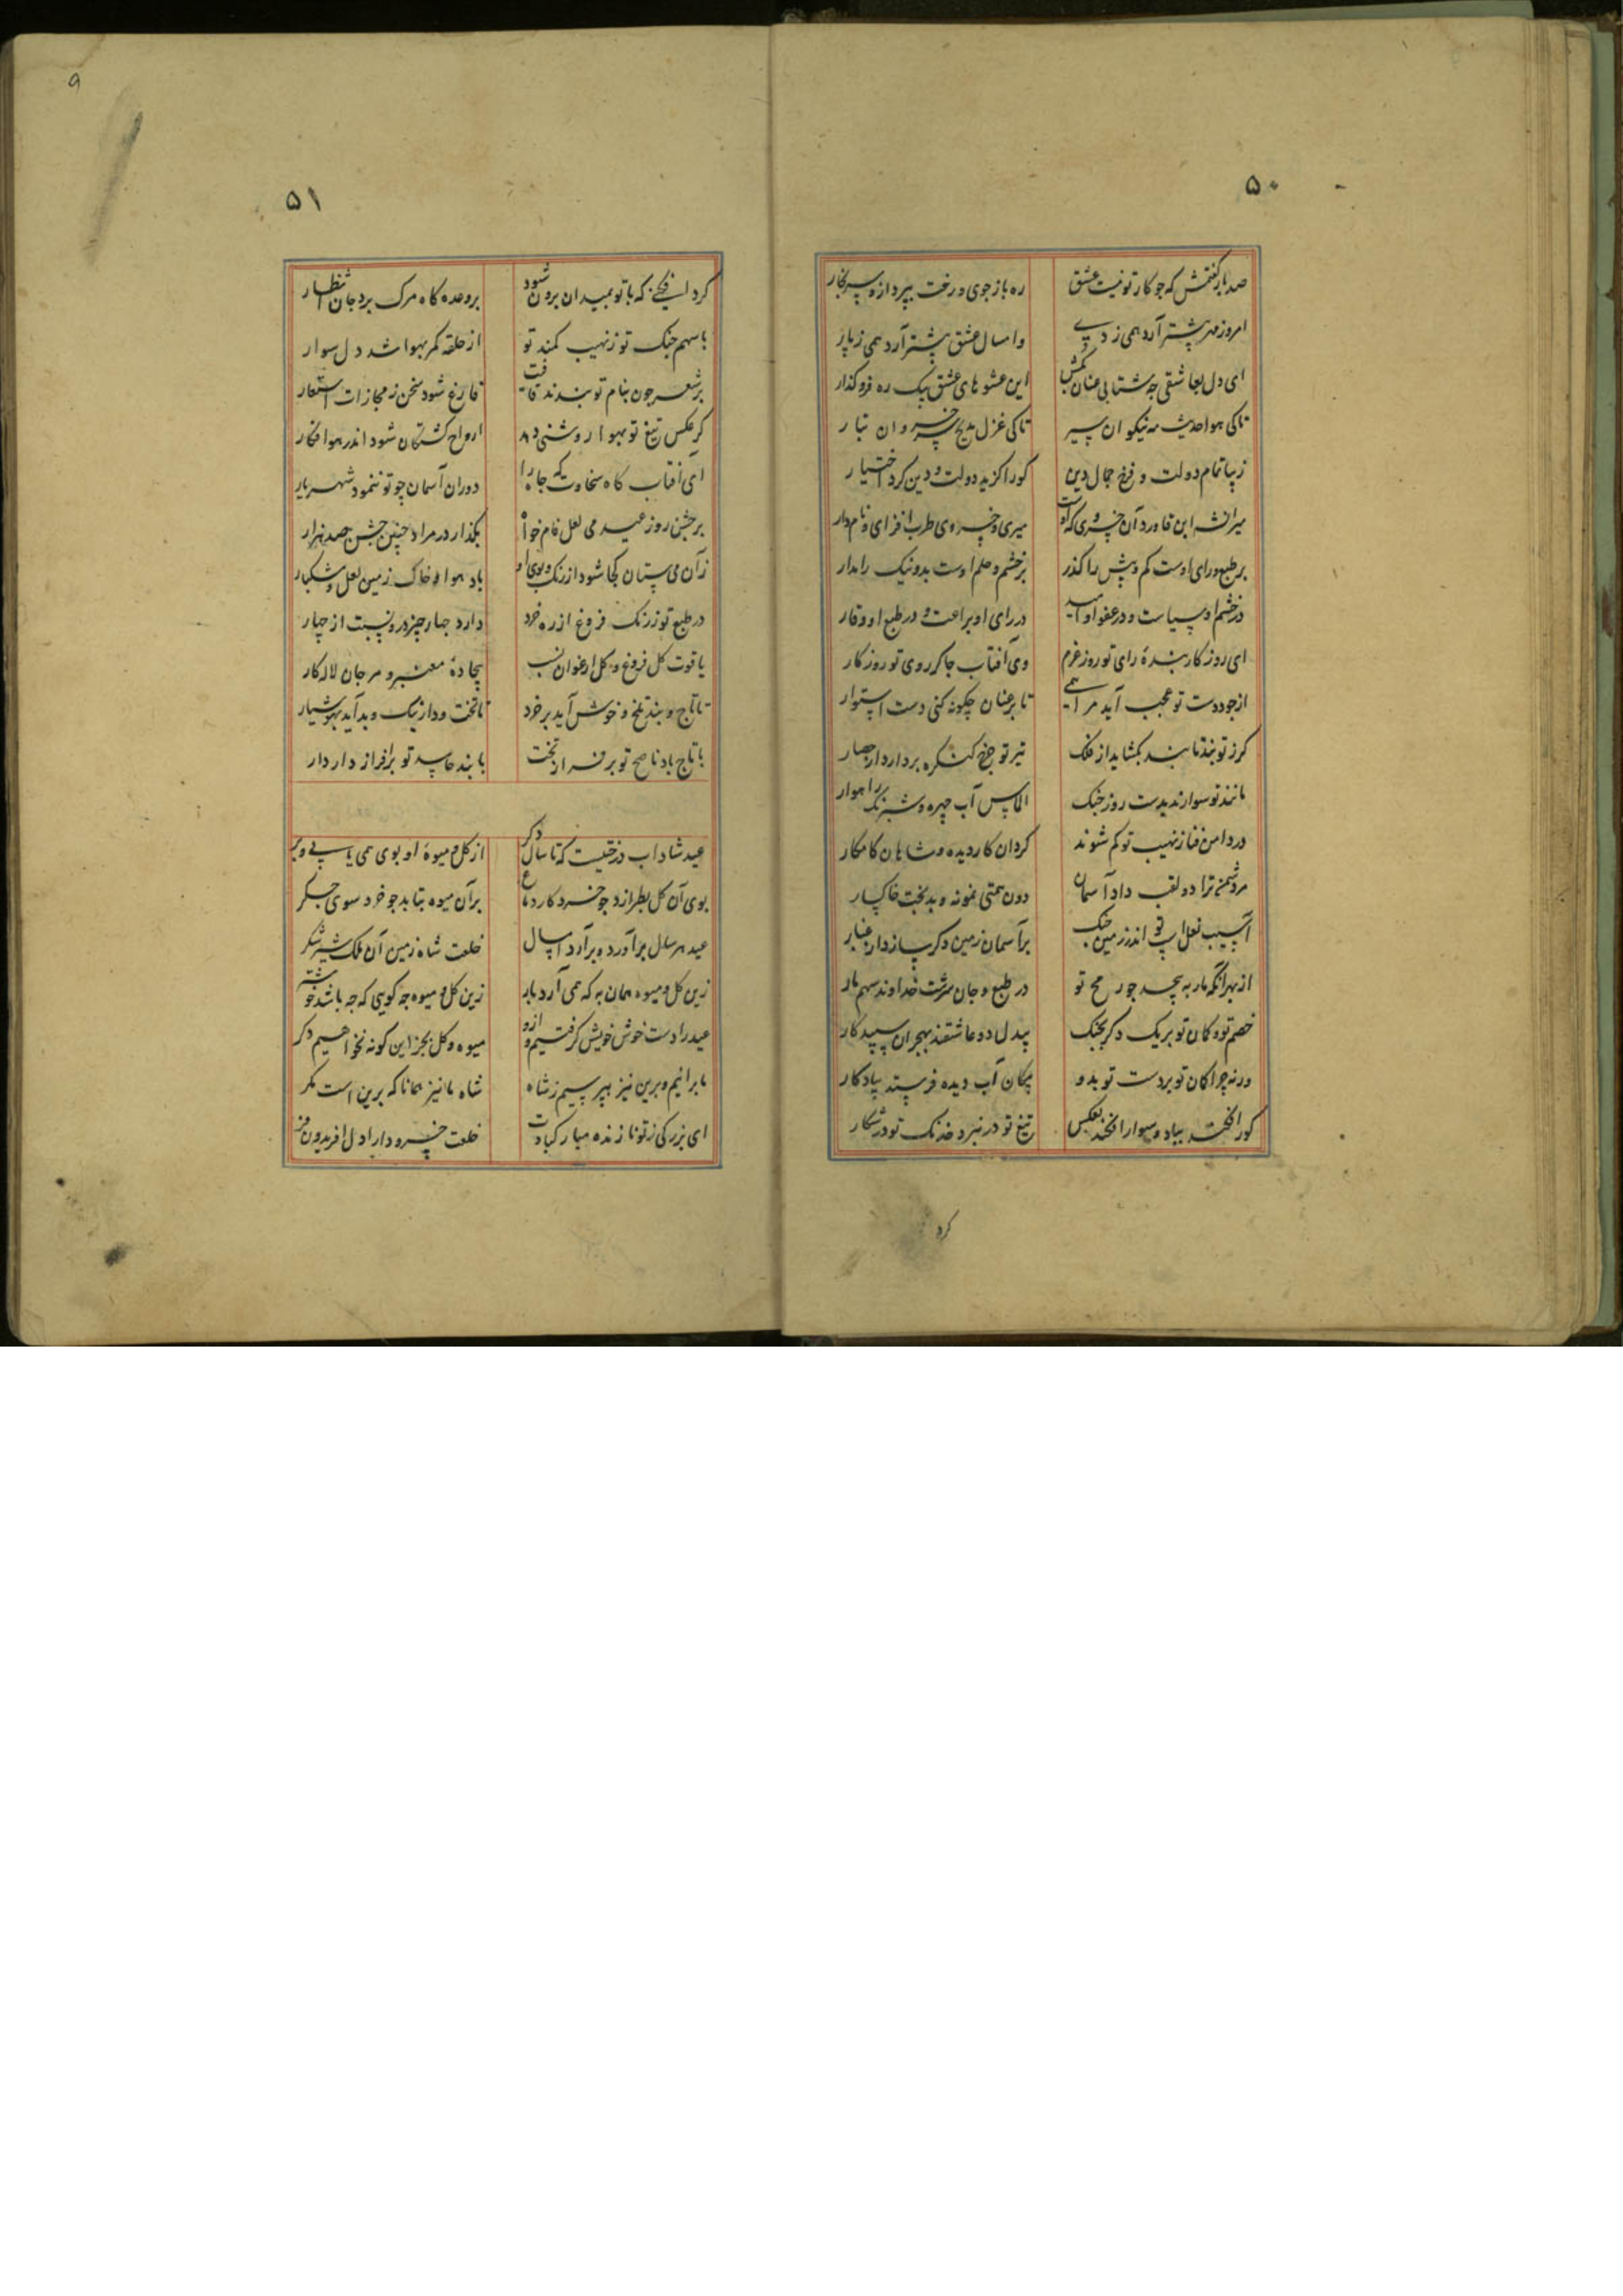 ۹
۵۰
صد بار گفتمش که چو کار تو نیست عشق
ره باز جوی و رخت بپرداز و سر بخار
امروز مهر پیشتر آرد همی ز دی
وامسال عشق پیشتر آرد همی ز پار
ای دل بعاشقی چه شتابی عنان بکش
این عشوهای عشق بیک ره فرو گذار
تا کی هوا حدیث مه نیکوان بسر
تا کی غزل مدیح خسروان تبار
زیبا تمام دولت و فرخ جمال دین
کورا گزید دولت و دین کرد اختیار
میرانشه ابن قاورد آن خسروی که اوست
میری و خسروی طرب افزای و نامدار
بر طبع و رای اوست کم و بیش را گذر
بر خشم و حلم اوست بد و نیک را مدار
در خشم او سیاست و در عفو او امید
در رای او براعت و در طبع او وقار
ای روزگار بندهٔ رای تو روز عزم
وی آفتاب چاکر روی تو روز کار
از جود دست تو عجب آید مرا همی
تا بر عنان چگونه کنی دست استوار
گرز تو بند نا بند بگشاید از فلک
تیر تو چرخ کنگره بردارد از حصار
مانند تو سوار ندیدست روز جنگ
الماس آب چهره و شبرنگ راهوار
در دامن فنا ز نهیب تو گم شوند
گردان کار دیده و شاهان کامکار
مر دشمن ترا دو لقب داد آسمان
دون همتی نمونه و بدبخت خاکسار
آسیب نعل اسپ تو اندر زمین جنگ
بر آسمان زمین دگر سازد از غبار
از بهر آنکه مار به پیچد چو رمح تو
در طبع و جان سرشت خداوند سهم مار
خصم تو و کمان تو بر یک دگر بجنگ
بیدل دو عاشقند بهجران سپید کار
ورنه چرا کمان تو بر دست تو بدو
پیکان آب دیده فرستد بیادگار
گور افکند بباد و سوار افکند بعکس
تیغ تو در نبرد و خدنگ تو در شکار
کرد
۵۱
کرد افکنی که با تو بمیدان برون شود
بر وعده گاه مرگ برد جان انتظار
با سهم جنگ تو ز نهیب کمند تو
از حلقه کمر بهوا شد دل سوار
بر شعر چون بنام تو بندند قافیت
فارغ شود سخن ز مجازات استعار
گر عکس تیغ تو بهوا روشنی دهد
ارواح کشتگان شود اندر هوا فکار
ای آفتاب گاه سخاوت یکجا ترا
دوران آسمان چو تو ننمود شهریار
بر جشن روز عید می لعل فام خواه
بگذار در مراد چنین جشن صد هزار
زآن می ستان کجا شود از رنگ و بوی او
باد هوا و خاک زمین لعل و مشکبار
در طبع تو ز رنگ فروغ از ره خرد
دارد چهار چیز درو نسبت از چهار
یاقوت گل فروغ و گل ارغوان نسب
بیجادهٔ معنبر و مرجان لاله کار
تا تاج و بند تلخ و خوش آید بر خرد
تا تخت و دار نیک و بد آید بهوشیار
با تاج باد ناصح تو بر فراز تخت
با بند حاسد تو بر افراز دار دار
عید شاداب درختیست که تا سال دگر
از گل و میوهٔ او بوی همی یابی و بر
بوی آن گل بطرازد چو خرد کار دماغ
بر آن میوه بتابد چو خرد سوی جگر
عید هر سال بر آورد و بر آرد امسال
خلعت شاه زمین آن ملک شیر شکر
زین گل و میوه همان به که همی آرد بار
زین گل و میوه چه گویی که چه باشد خوشتر
عید را دست خوش خویش گرفتیم و ازو
میوه و گل بجز این گونه نخواهیم دگر
ما برانیم و برین نیز بپرسیم ز شاه
شاه ما نیز همانا که برین است مگر
ای بزرگی ز تو نازنده مبارک بادت
خلعت خسرو دارا دل افریدون فر